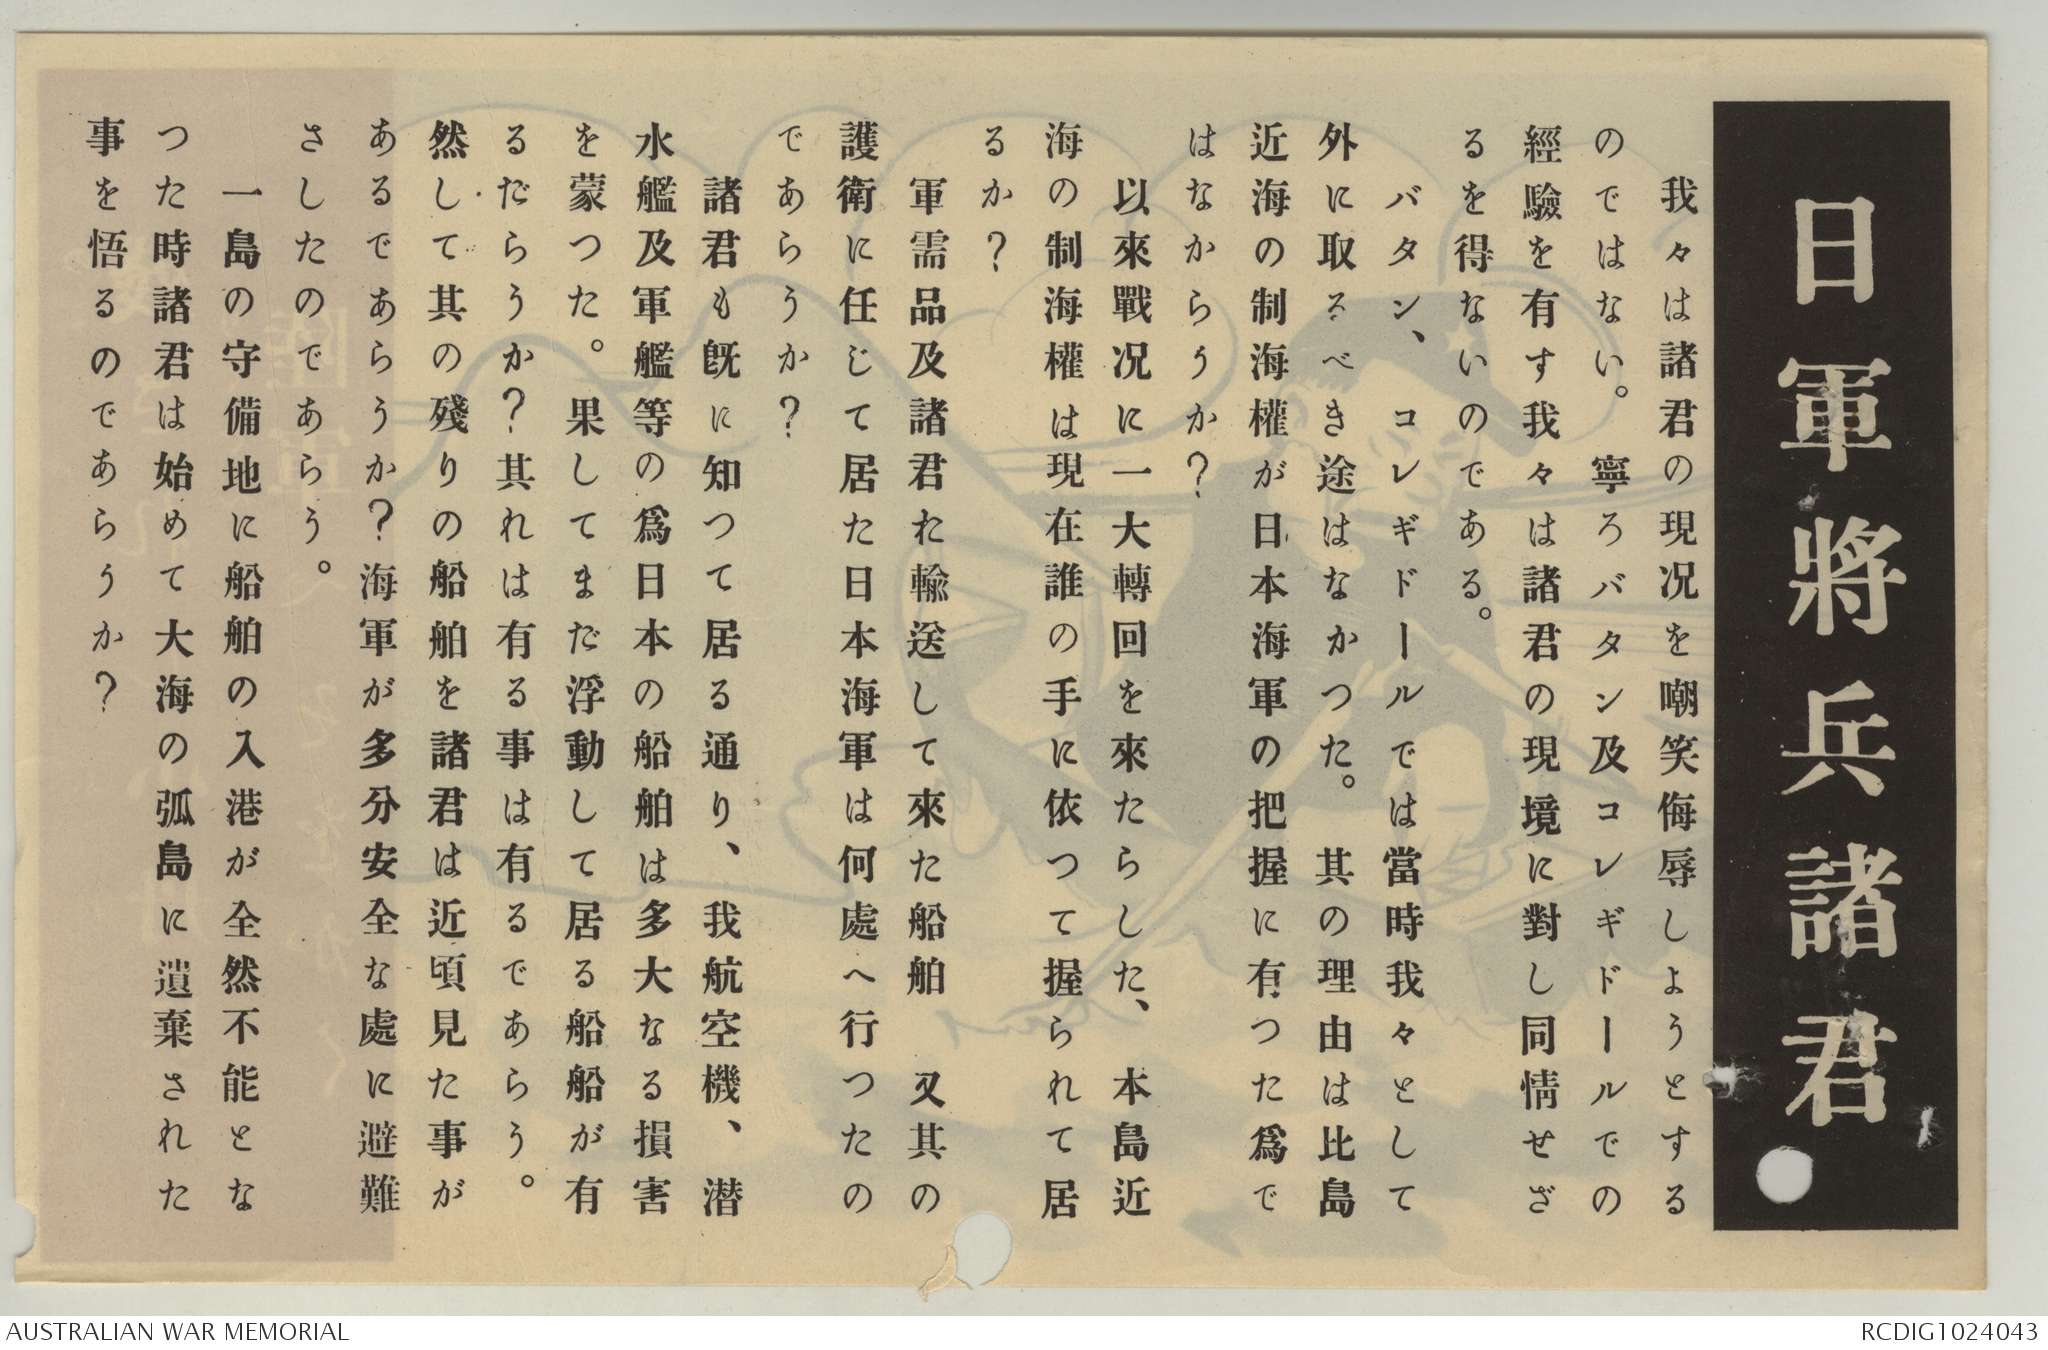 日軍將兵諸君
我々は諸君の現況を嘲笑侮辱しようとする
のではない。寧ろバタン及コレギドールでの
經驗を有す我々は諸君の現境に對し同情せざ
るを得ないのである。
バタン、コレギドールでは當時我々として
外に取るべき途はなかつた。其の理由は比島
近海の制海權が日本海軍の把握に有つた爲で
はなからうか？
以來戰況に一大轉回を來たらした、本島近
海の制海權は現在誰の手に依つて握られて居
るか？
軍需品及諸君れ輸送して來た船舶　又其の
護衛に任じて居た日本海軍は何處へ行つたの
であらうか？
諸君も既に知つて居る通り、我航空機、潜
水艦及軍艦等の爲日本の船舶は多大なる損害
を蒙つた。果してまだ浮動して居る船船が有
るだらうか？其れは有る事は有るであらう。
然して其の殘りの船舶を諸君は近頃見た事が
あるであらうか？海軍が多分安全な處に避難
さしたのであらう。
一島の守備地に船舶の入港が全然不能とな
つた時諸君は始めて大海の弧島に遺棄された
事を悟るのであらうか？
AUSTRALIAN WAR MEMORIAL
RCDIG1024043